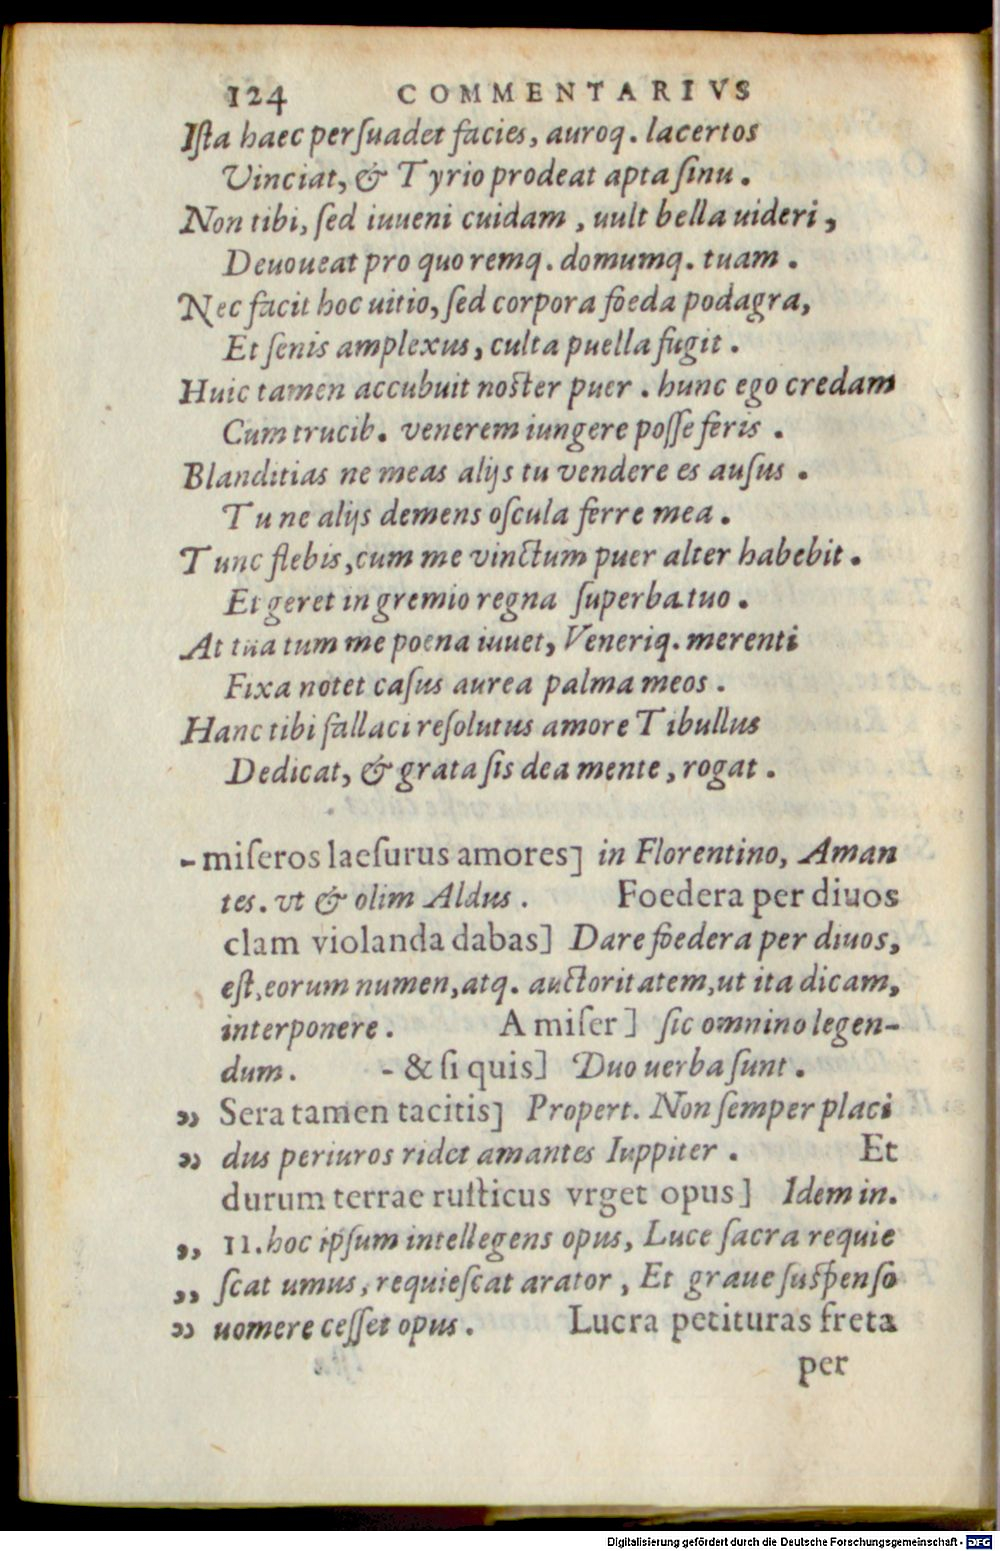 124 COMMENTARIVS
Iſta haec perſuadet facies, auroq. lacertos
Vinciat, & Tyrio prodeat apta ſinu.
Non tibi, ſed iuueni cuidam, uult bella uideri,
Deuoueat pro quo remq. domumq. tuam.
Nec facit hoc uitio, ſed corpora foeda podagra,
Et ſenis amplexus, culta puella fugit.
Huic tamen accubuit noſter puer. hunc ego credam
Cum trucib. venerem iungere poſſe feris.
Blanditias ne meas alijs tu vendere es auſus.
Tu ne alijs demens oſcula ferre mea.
Tunc flebis, cum me vinctum puer alter habebit.
Et geret in gremio regna ſuperba tuo.
At tua tum me poena iuuet, Veneriq. merenti
Fixa notet caſus aurea palma meos.
Hanc tibi fallaci reſolutus amore Tibullus
Dedicat, & grata ſis dea mente, rogat.
-miſeros laeſurus amores] in Florentino, Aman
tes. vt & olim Aldus. Foedera per diuos
clam violanda dabas] Dare foedera per diuos,
eſt, eorum numen, atq. auctoritatem, ut ita dicam,
interponere. A miſer] ſic omnino legen-
dum. -& ſi quis] Duo uerba ſunt.
„ Sera tamen tacitis] Propert. Non ſemper placi
„ dus periuros ridet amantes Iuppiter. Et
durum terrae ruſticus vrget opus] Idem in.
„ II. hoc ipſum intellegens opus, Luce ſacra requie
„ ſcat umus, requieſcat arator, Et graue ſuſpenſo
„ uomere ceſſet opus. Lucra petituras freta
per
Digitalisierung gefördert durch die Deutsche Forschungsgemeinschaft - DFG